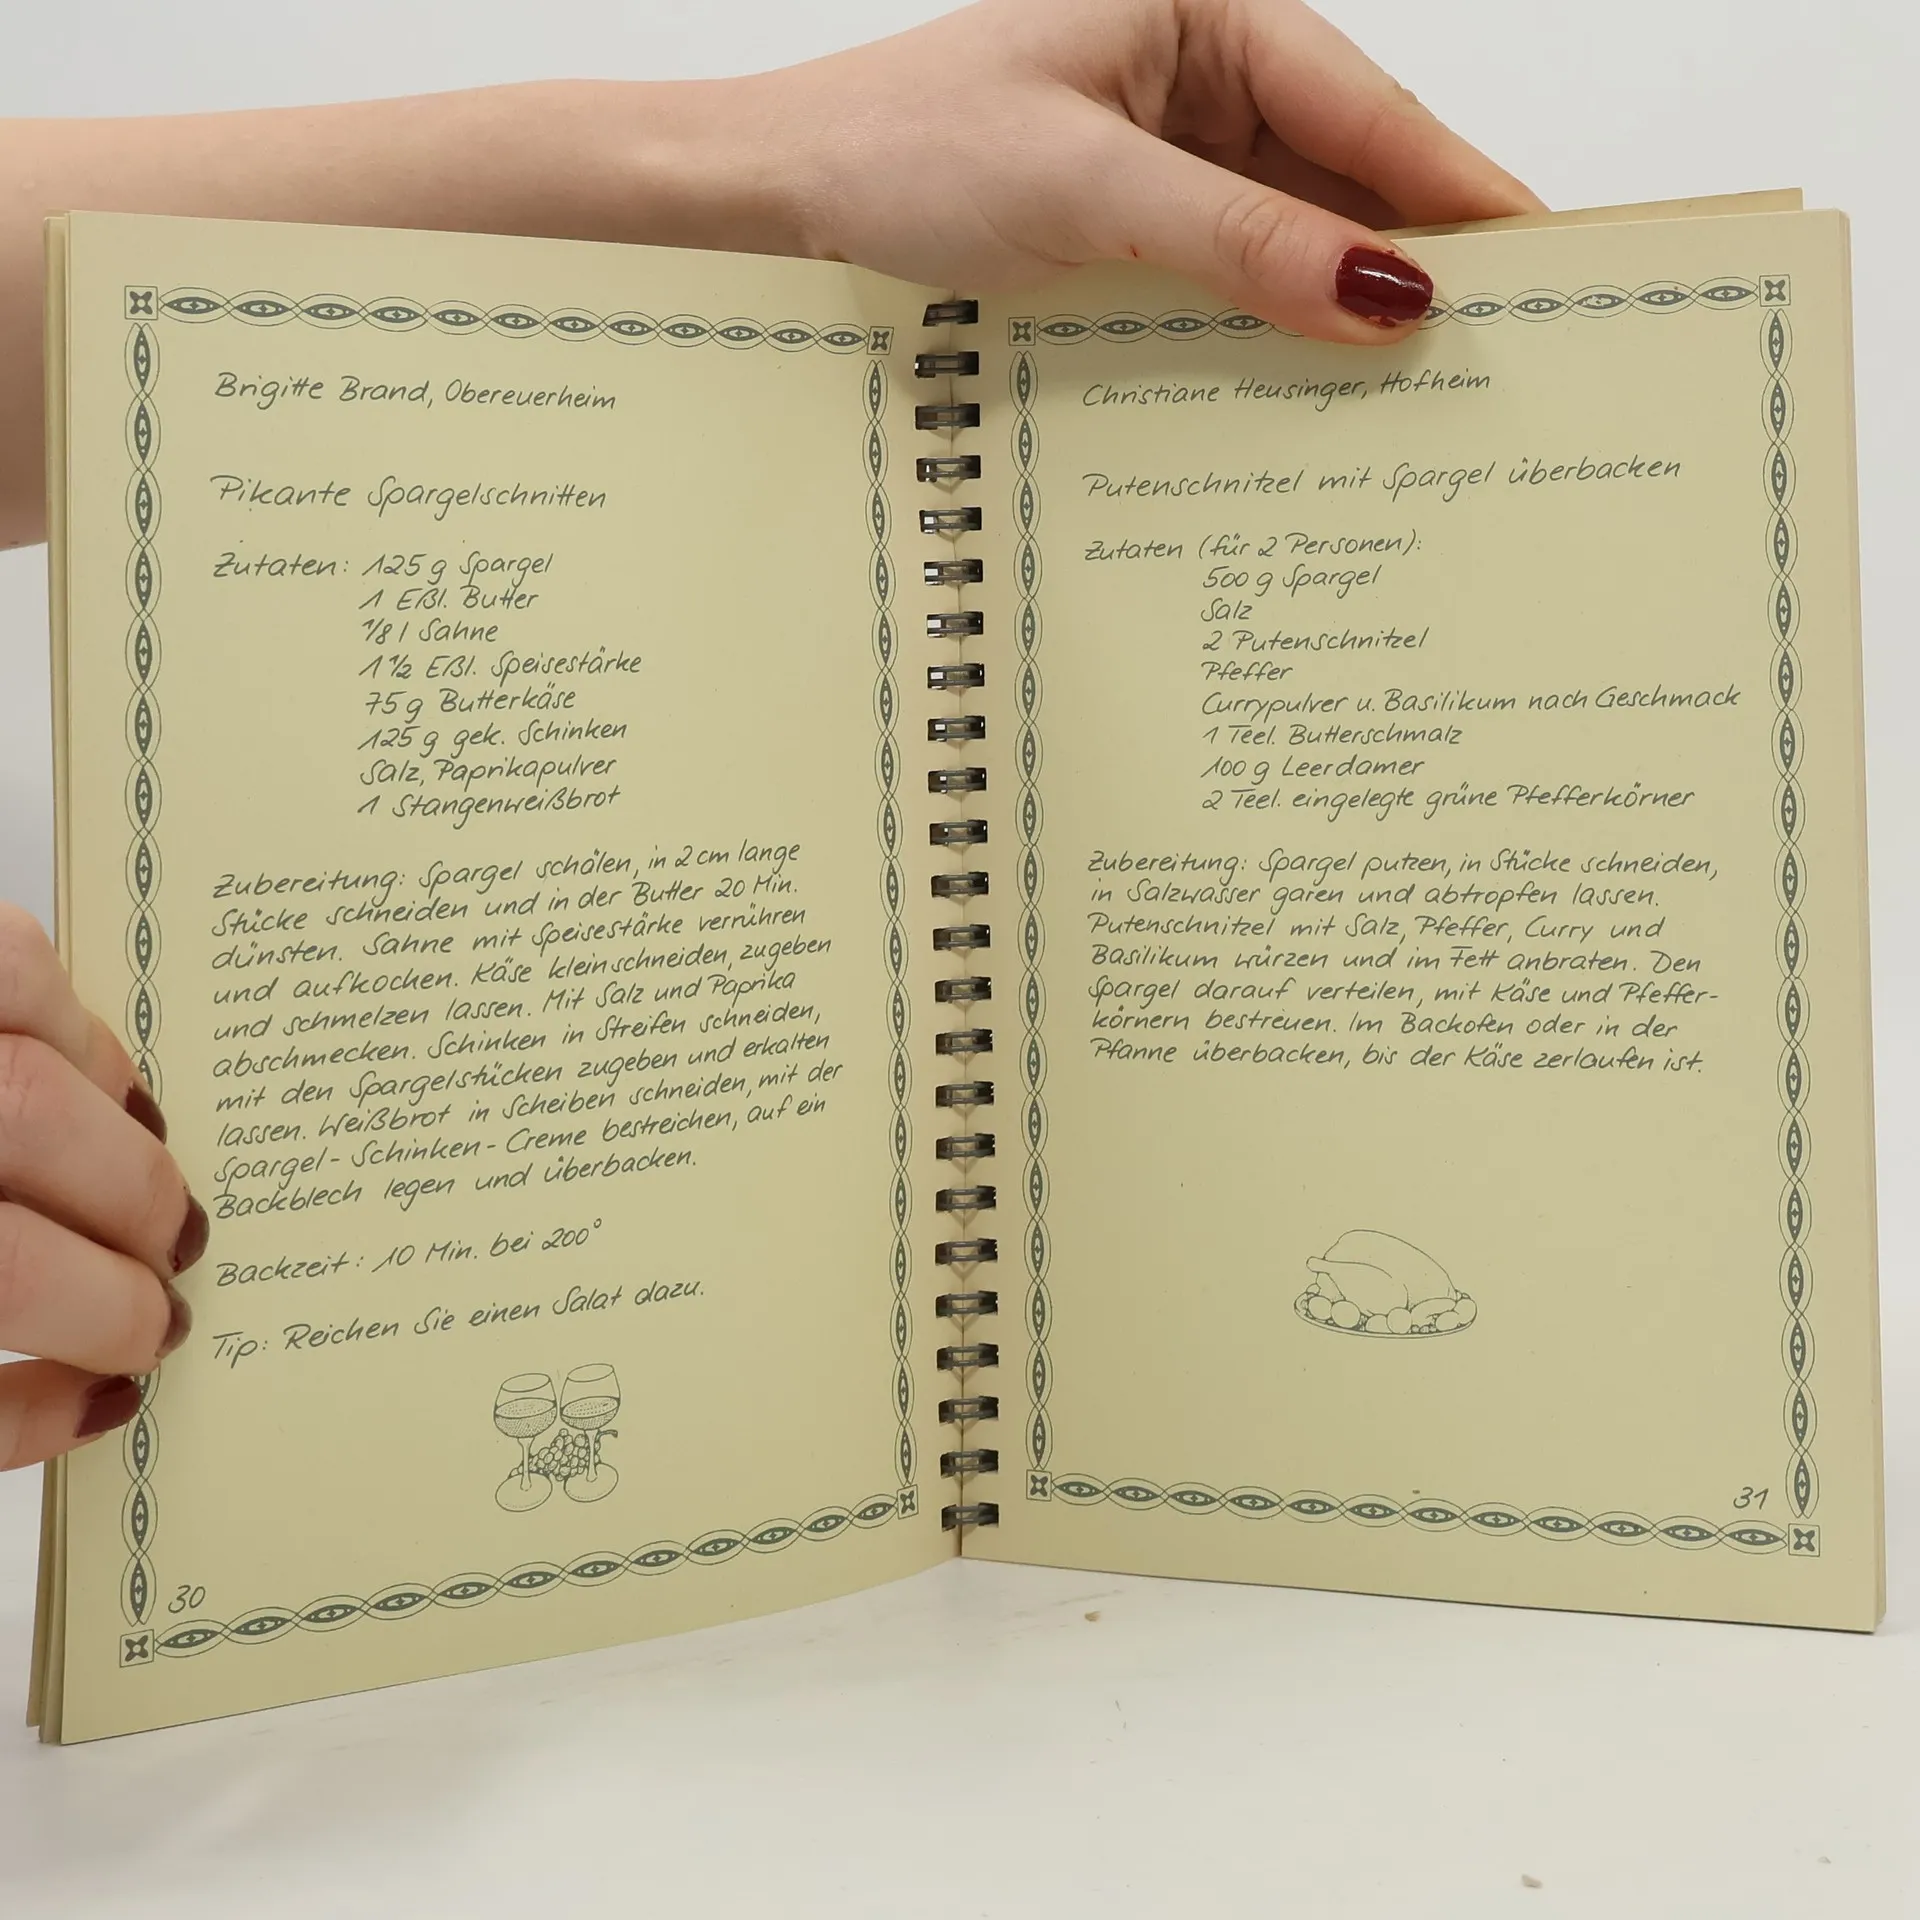 Brigitte Brand, Obereuerheim
Pikante Spargelschnitten
Zutaten: 125 g Spargel
1 Eßl. Butter
1/8 l Sahne
1 1/2 Eßl. Speisestärke
75 g Butterkäse
125 g gek. Schinken
Salz, Paprikapulver
1 Stangenweißbrot
Zubereitung: Spargel schälen, in 2 cm lange
Stücke schneiden und in der Butter 20 Min.
dünsten. Sahne mit Speisestärke verrühren
und aufkochen. Käse kleinschneiden, zugeben
und schmelzen lassen. Mit Salz und Paprika
abschmecken. Schinken in Streifen schneiden,
mit den Spargelstücken zugeben und erkalten
lassen. Weißbrot in Scheiben schneiden, mit der
Spargel-Schinken-Creme bestreichen, auf ein
Backblech legen und überbacken.
Backzeit: 10 Min. bei 200°
Tip: Reichen Sie einen Salat dazu.
30
Christiane Heusinger, Hofheim
Putenschnitzel mit Spargel überbacken
Zutaten (für 2 Personen):
500 g Spargel
Salz
2 Putenschnitzel
Pfeffer
Currypulver u. Basilikum nach Geschmack
1 Teel. Butterschmalz
100 g Leerdamer
2 Teel. eingelegte grüne Pfefferkörner
Zubereitung: Spargel putzen, in Stücke schneiden,
in Salzwasser garen und abtropfen lassen.
Putenschnitzel mit Salz, Pfeffer, Curry und
Basilikum würzen und im Fett anbraten. Den
Spargel darauf verteilen, mit Käse und Pfeffer-
körnern bestreuen. Im Backofen oder in der
Pfanne überbacken, bis der Käse zerlaufen ist.
31